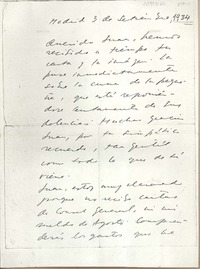 Madrid 3 de Setiembre, 1934
Querido Juan, hemos
recibido a tiempo tu
carta y la
puse inmediatamente
sobre la cama de la peque
ña, que está reponién-
dose lentamente de sus
dolencias. Muchas gracias
Juan, por tu simpático
recuerdo, tan gentil
como todo lo que de ti
viene.
Juan, estoy muy alarmado
porque no recibo cartas
de Consul General, ni mi
sueldo de Agosto. Compren-
derás los gastos que he